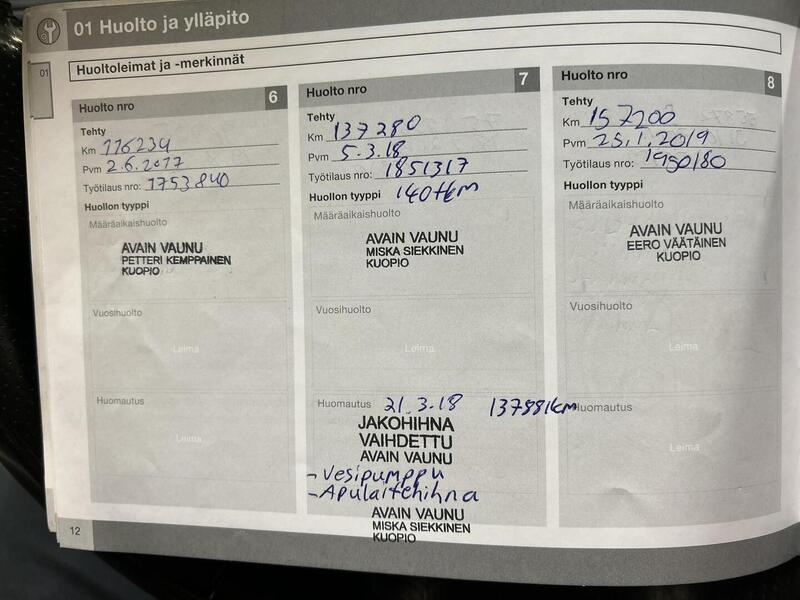 01 Huolto ja ylläpito
01
Huoltoleimat ja -merkinnät
Huolto nro 6
Tehty
Km 116234
Pvm 2.6.2017
Työtilaus nro: 1753840
Huollon tyyppi
Määräaikaishuolto
AVAIN VAUNU
PETTERI KEMPPAINEN
KUOPIO
Vuosihuolto
Leima
Huomautus
Leima
Huolto nro 7
Tehty
Km 137280
Pvm 5.3.18
Työtilaus nro: 1851317
Huollon tyyppi 140tkm
Määräaikaishuolto
AVAIN VAUNU
MISKA SIEKKINEN
KUOPIO
Vuosihuolto
Leima
Huomautus 21.3.18 137881km
JAKOHIHNA
VAIHDETTU
AVAIN VAUNU
- Vesipumppu
- Apulaitehihna
AVAIN VAUNU
MISKA SIEKKINEN
KUOPIO
Huolto nro 8
Tehty
Km 157200
Pvm 25.1.2019
Työtilaus nro: 1950180
Huollon tyyppi
Määräaikaishuolto
AVAIN VAUNU
EERO VÄÄTÄINEN
KUOPIO
Vuosihuolto
Leima
Huomautus
Leima
12